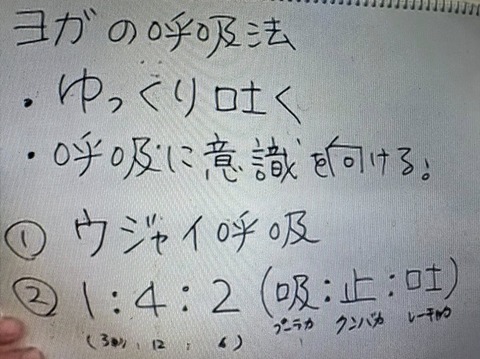 ヨガの呼吸法
・ゆっくり吐く
・呼吸に意識を向ける。
① ウジャイ呼吸
② 1:4:2 (吸:止:吐)
プーラカ クンバカ レーチャカ
(3秒: 12 : 6)